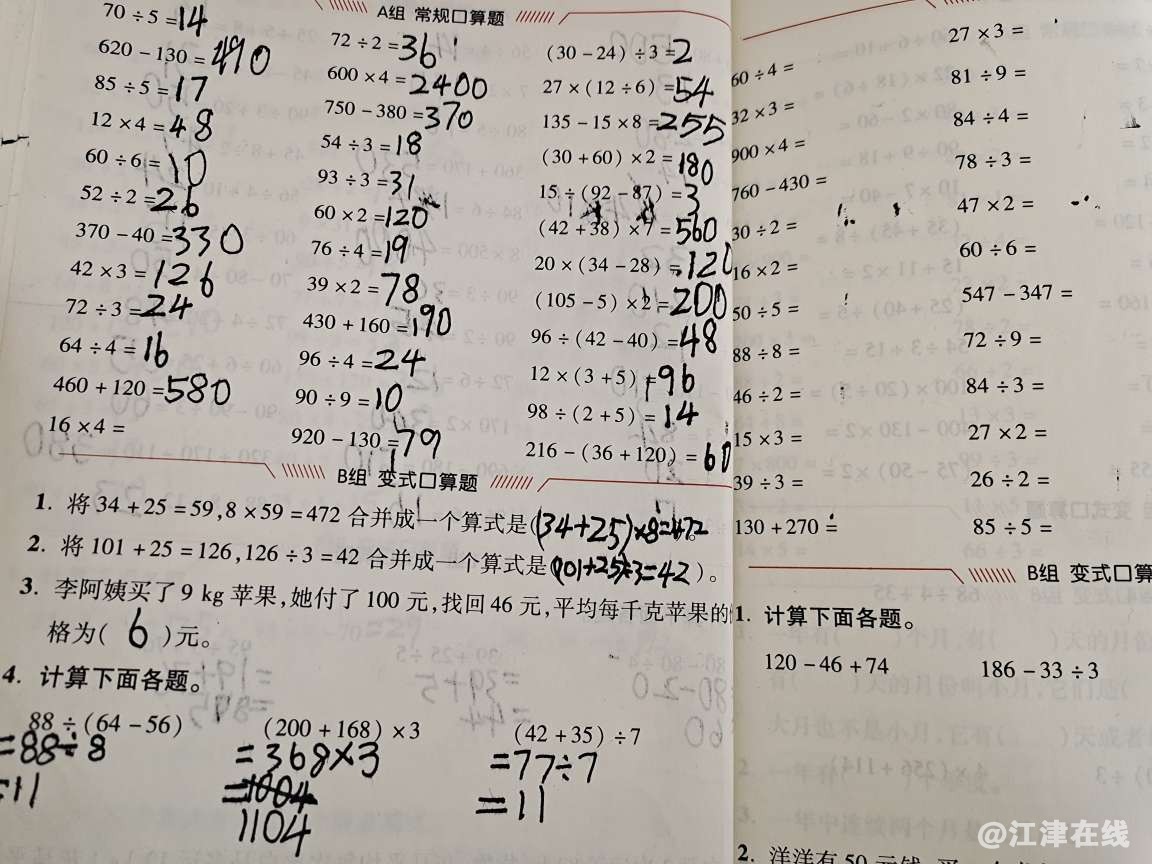 A组 常规口算题
70÷5=14
620-130=490
85÷5=17
12×4=48
60÷6=10
52÷2=26
370-40=330
42×3=126
72÷3=24
64÷4=16
460+120=580
16×4=
72÷2=36
600×4=2400
750-380=370
54÷3=18
93÷3=31
60×2=120
76÷4=19
39×2=78
430+160=190
96÷4=24
90÷9=10
920-130=79
(30-24)÷3=2
27×(12÷6)=54
135-15×8=255
(30+60)×2=180
15÷(92-87)=3
(42+38)×7=560
20×(34-28)=120
(105-5)×2=200
96÷(42-40)=48
12×(3+5)=96
98÷(2+5)=14
216-(36+120)=60
B组 变式口算题
1. 将34+25=59,8×59=472合并成一个算式是((34+25)×8=472)。
2. 将101+25=126,126÷3=42合并成一个算式是((101+25)÷3=42)。
3. 李阿姨买了9 kg苹果,她付了100元,找回46元,平均每千克苹果的
格为(6)元。
4. 计算下面各题。
88÷(64-56)
=88÷8
=11
(200+168)×3
=368×3
=1004
1104
(42+35)÷7
=77÷7
=11
60÷4=
32×3=
900×4=
760-430=
30÷2=
16×2=
50÷5=
88÷8=
46÷2=
15×3=
39÷3=
130+270=
27×3=
81÷9=
84÷4=
78÷3=
47×2=
60÷6=
547-347=
72÷9=
84÷3=
27×2=
26÷2=
85÷5=
B组 变式口算
1. 计算下面各题。
120-46+74
186-33÷3
2. 洋洋有50元钱
@江津在线